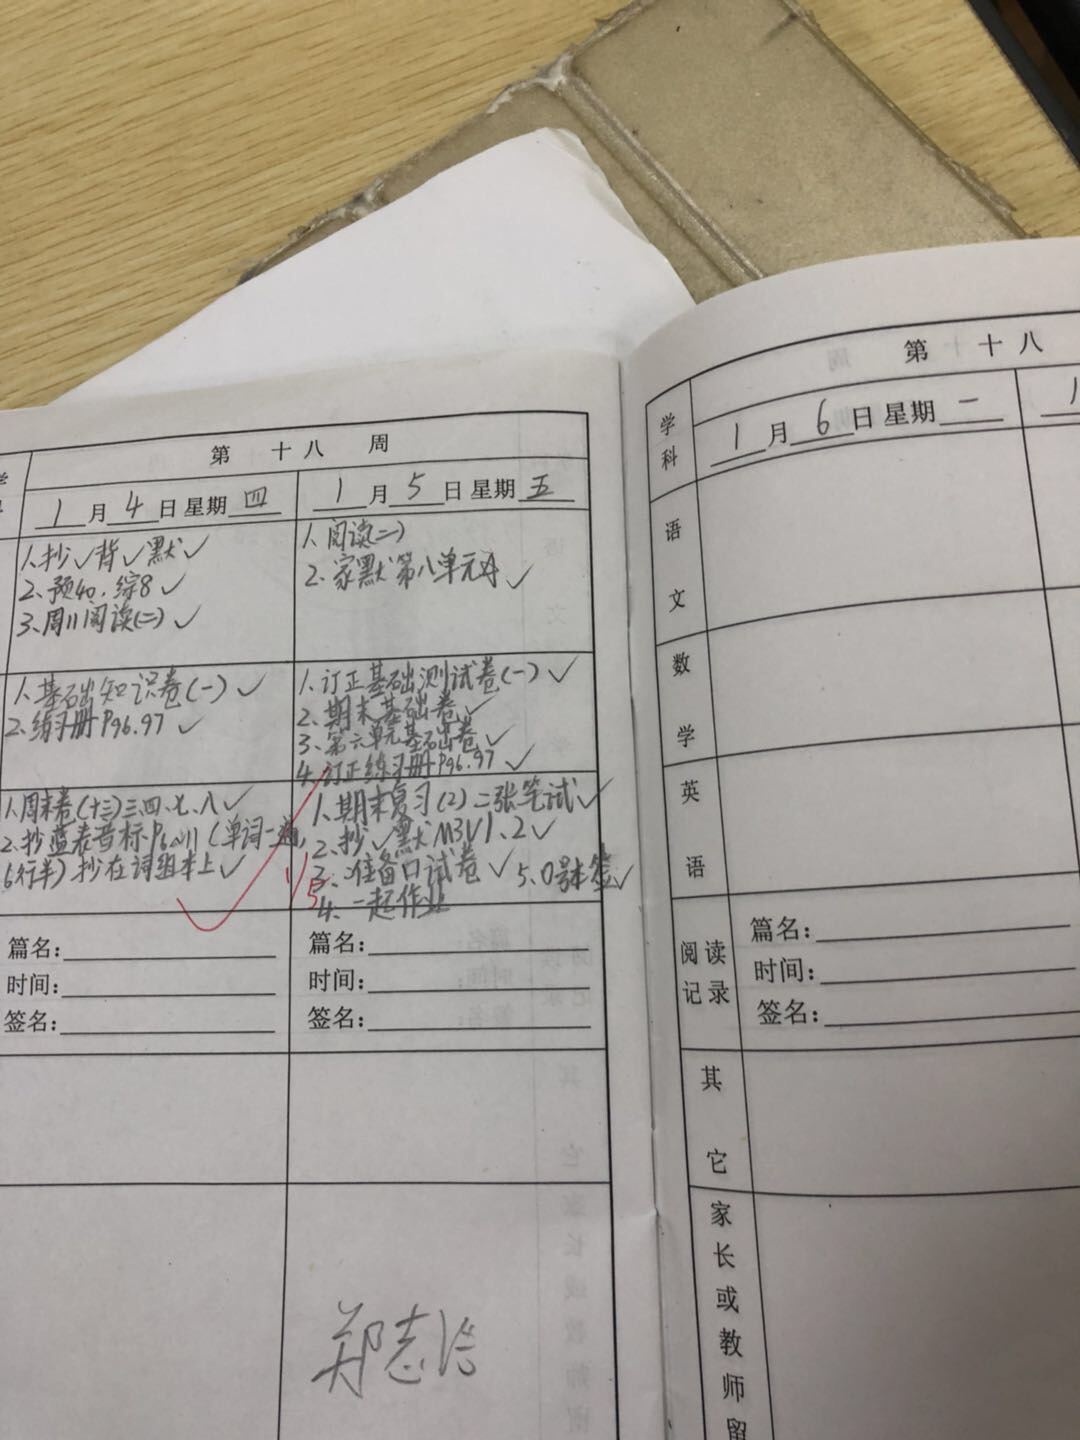 第 十八 周
1月4日 星期 四
1.抄✓背✓默✓
2.预40.综8✓
3.周11阅读(二)✓
1.基础知识卷(一)✓
2.练习册P96.97✓
1.周末卷(十三)三.四.七.八✓
2.抄蓝表音标 (单词一遍,
6行半)抄在词组本上✓
篇名:
时间:
签名:
1月5日 星期 五
1.阅读(二)
2.家默第八单元 ✓
1.订正基础测试卷(一)✓
2.期末基础卷✓
3.第六单元基础卷✓
4.订正练习册P96.97✓
1.期末复习(2)二张笔试✓
2.抄✓默M3U1.2✓
3.准备口试卷✓ 5.0号本签✓
4.一起作业
1/5
篇名:
时间:
签名:
郑志浩
第 十八
学科
1月6日 星期 一
1
语文
数学
英语
阅读记录
篇名:
时间:
签名:
其它
家长或教师留